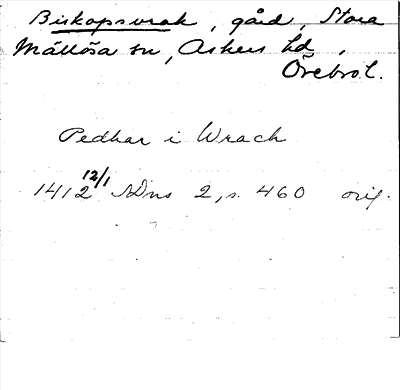 Biskopsvrak, gård, Stora
Mällösa sn, Askers hd,
Örebro l.
Pedhar i Wrach
1412 12/1 SDns 2, s. 460 orig.